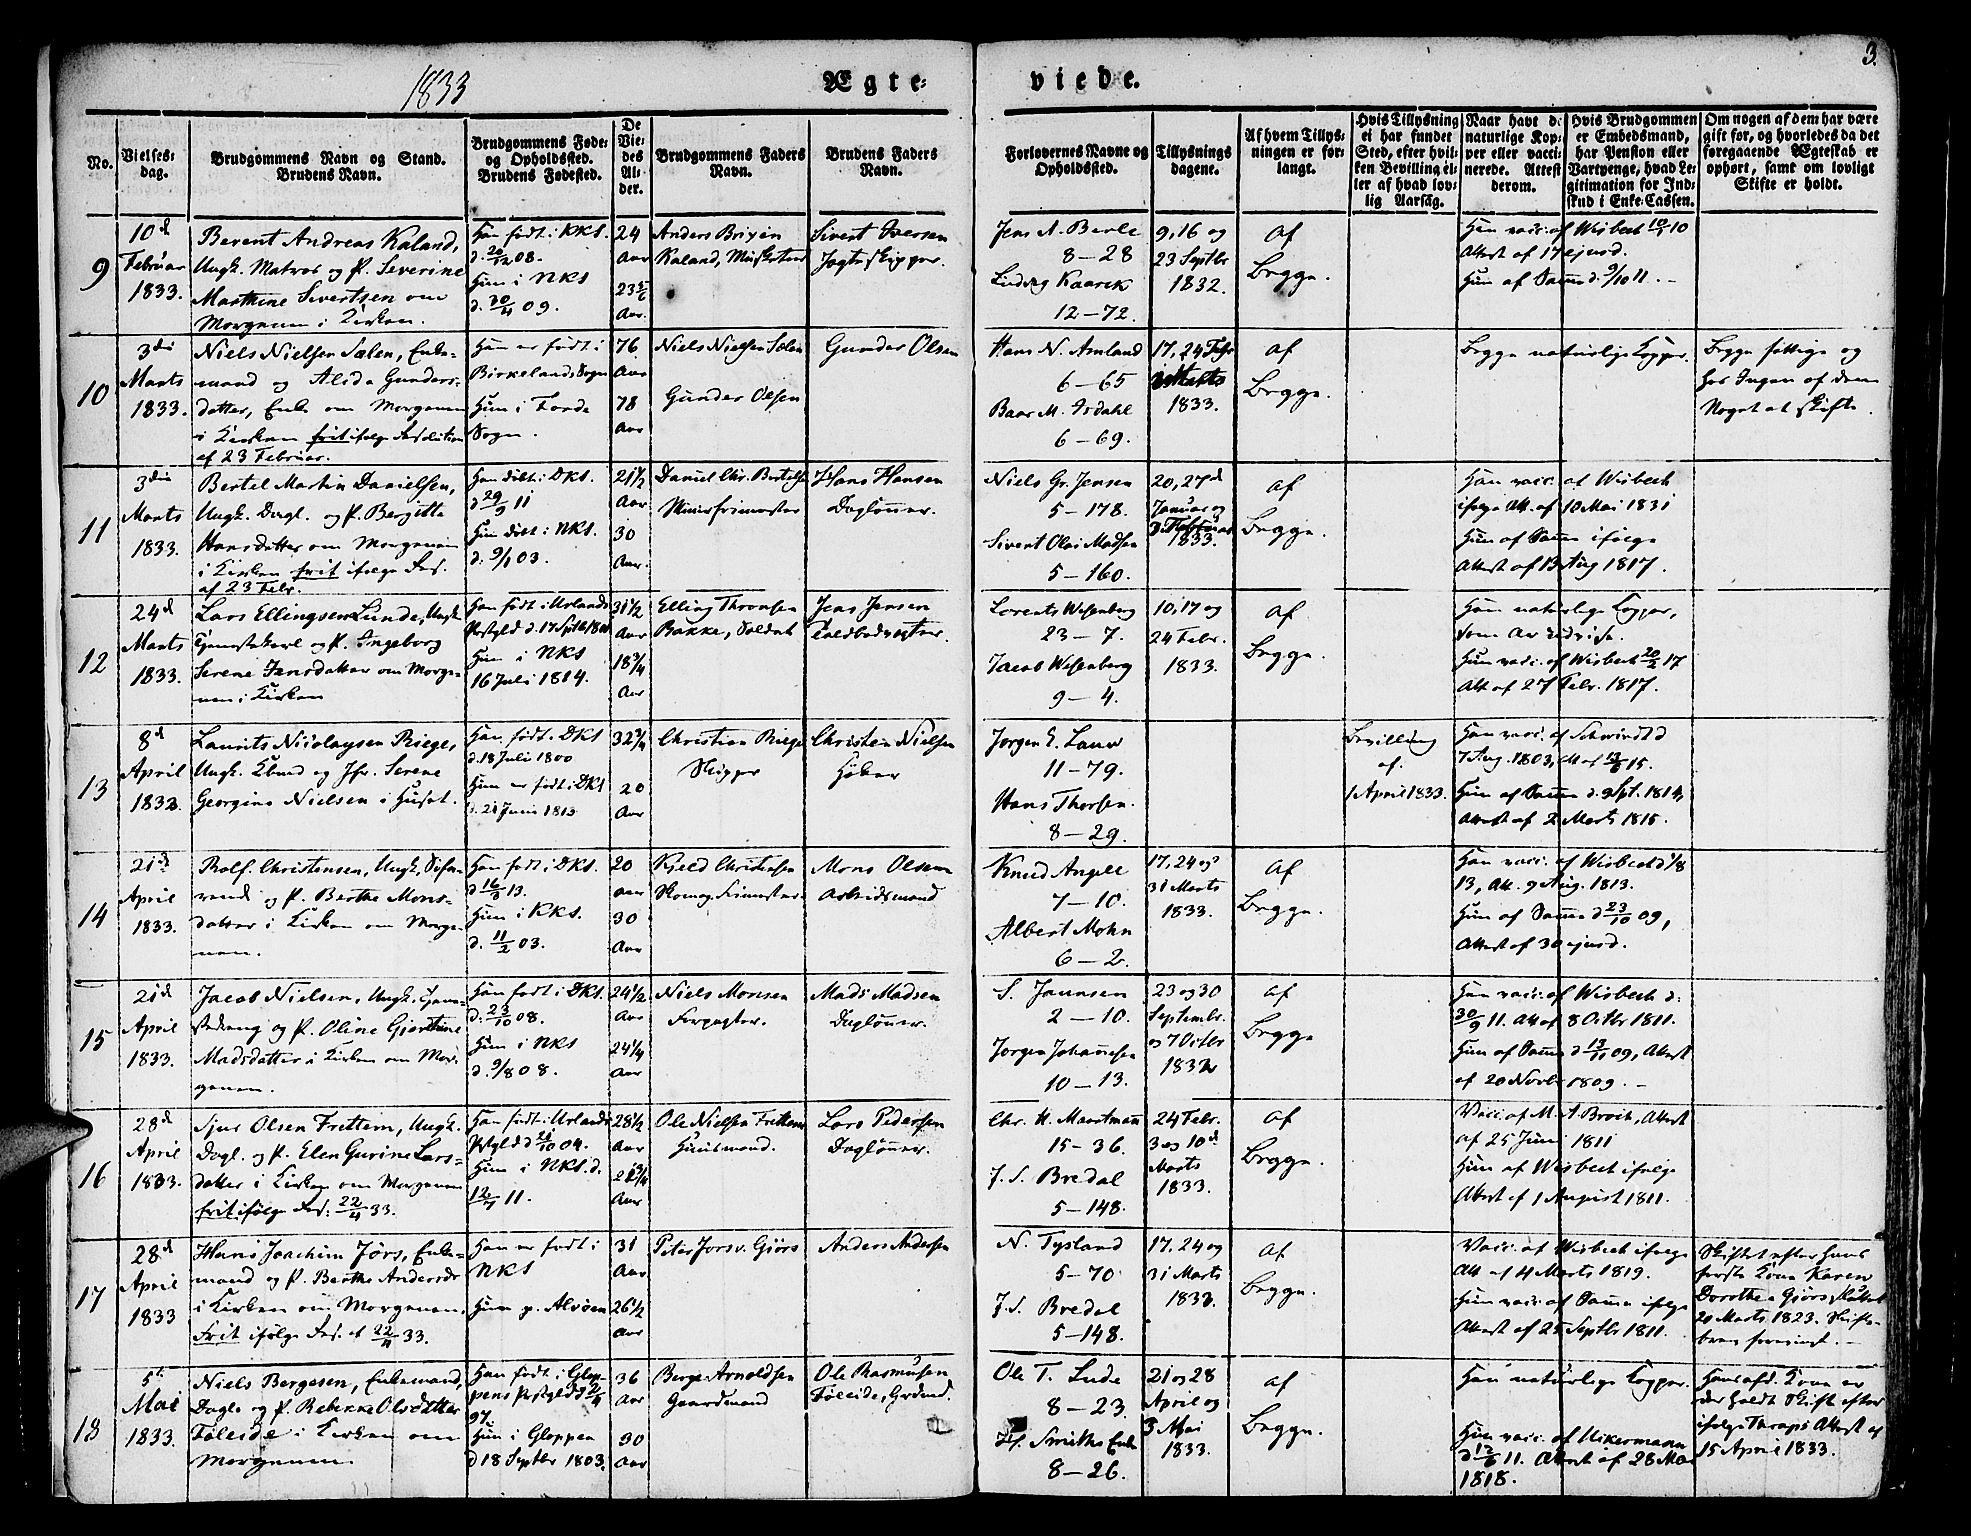 1833
Ægte-
viede.
3.
No.
Vielses-
dag.
Brudgommens Navn og Stand.
Brudens Navn.
Brudgommens Føde-
og Opholdssted.
Brudens Fødested.
De
Vie-
des
Al-
der.
Brudgommens Faders
Navn.
Brudens Faders
Navn.
Forlovernes Navne og
Opholdssted.
Tillysnings
dagene.
Af hvem Tillys-
ningen er for-
langt.
Hvis Tillysning
ei har fundet
Sted, efter hvil-
ken Bevilling el-
ler af hvad lov-
lig Aarsag.
Naar havt de
naturlige Kop-
per eller vacci-
nerede. Attest
derom.
Hvis Brudgommen
er Embedsmand,
har Pension eller
Vartpenge, hvad Le-
gitimation for Ind-
skud i Enke-Cassen.
Om nogen af dem har være
gift før, og hvorledes da det
foregaaende Ægteskab er
ophørt, samt om lovligt
Skifte er holdt.
9
10d
Februar
1833.
Berent Andreas Kaland,
Ungk. Matros og P. Severine
Marthine Sivertsen om
Morgenen i Kirken.
Han født i KKS.
d. 20/12 08.
Hun i NKS
d. 30/4 09.
24
Aar
23 5/6
Aar.
Anders
Kaland,
Sivert Iversen
Jagteskipper.
Jens N. Berle
8-28
Ludvig Kaarek
12-72.
9, 16 og
23 Septbr
1832.
af
Begge.
Han vacc. af Wisbech 10/1 10
Attest af 17 ejusd.
Hun af Samme d. 9/10 11. -
10
3die
Marts
1833.
Niels Nielsen Sælen, Enke-
mand og Alida Gunders-
datter, Enke om Morgenen
i Kirken frit ifølge Resolution
af 23 Februar.
Han er født i
Birkelands Sogn
Hun i Førde
Sogn.
76
Aar
78
Aar
Niels Nielsen Sælen
Gunder Olsen
Gunder Olsen
Hans N. Amland
6-65
Baar M. Isdahl
6-69.
17, 24 Febr
3 Marts
1833.
af
Begge.
Begge naturlige Kopper.
Begge fattige og
har Ingen af dem
Noget at skifte.
11
3die
Marts
1833.
Bertel Martin Danielsen,
Ungk. Dagl. og P. Bergitte
Hansdatter om Morgenen
i Kirken frit ifølge Res.
af 23 Febr.
Han døbt i DKS.
d 29/9 11
Hun døbt i NKS.
d. 9/1 03.
21 1/2
Aar
30
Aar.
Daniel Chr. Bertelsen
Hans Hansen
Dagløner.
Niels Gr. Jensen
5-178.
Sivert Olai Madsen
5-160.
20, 27d
Januar og
3 Februar
1833.
af
Begge.
Han vacc. af Wisbech
ifølge Att. af 10 Mai 1831
Hun af Samme ifølge
Attest af 13 Aug 1817.
12
24d
Marts
1833.
Lars Ellingsen Lunde, Ungk.
Tjenestekarl og P. Ingeborg
Serene Jensdatter om Morge-
nen i Kirken
Han født i Urlands
Præstgjeld d. 17 Septb 1801
Hun i NKS
16 Juli 1814.
31 1/2
Aar
18 3/4
Aar
Elling Thronsen
Bakke, Soldat
Jens Jensen
Toldbodvogter.
Lorents Wesenberg
23-7.
Jacob Wesenberg
9-4.
10, 17 og
24 Febr.
1833.
af
Begge.
Han naturlige Kopper,
som Ar udvise.
Hun vacc. af Wisbech 20/2 17
Att af 27 Febr. 1817.
13
8d
April
1833.
Laurits Nicolaysen Riege,
Ungk. Kbmd og Jfr. Serene
Georgine Nielsen i Huset.
Han født i DKS
d. 18 Juli 1800
Hun er født i DKS
d. 21 Juni 1813
32 3/4
Aar
20
Aar
Christian Riege
Skipper
Christen Nielsen
Høker
Jørgen E. Lauw
11-79.
Hans Thorsen.
8-29.
Bevilling
af
1 April 1833.
Han vacc. af Schwindt d
7 Aug. 1803, Att af 13/6 15.
Hun af Samme d. 9 Spt. 1814,
Attest af 2 Marts 1815.
14
21d
April
1833.
Rolf Christensen, Ungk. Søfa-
rende og P. Berthe Mons-
datter i Kirken om Morge-
nen.
Han født i DKS.
d 16/3 13.
Hun i KKS.
d. 11/2 03.
20
Aar
30
Aar
Kjeld Christensen
Mons Olsen
Arbeidsmand
Knud Angell
7-10.
Albert Mohn
6-2.
17, 24 og
31 Marts
1833.
af
Begge.
Han vacc. af Wisbech d 1/8
13, Att. 9 Aug. 1813.
Hun af Samme d 23/10 09,
Attest af 30 ejusd.
15
21d
April
1833.
Jacob Nielsen, Ungk. Tjene-
stedreng og P. Oline Gjertine
Madsdatter i Kirken om Mor-
genen.
Han født i DKS.
d. 23/10 08.
Hun i NKS
d. 9/8 08.
24 1/2
Aar
24 1/4
Aar
Niels Monsen
Forpagter.
Mads Madsen
Dagløner.
S. Jaunsen
2-10.
Jørgen Johannesen
10-13.
23 og 30
Septembr.
og 7 Octbr
1832
af
Begge
Han vacc. af Wisbech d.
30/9 11. Att af 8 Octbr 1811.
Hun af Samme d 13/11 09, Attest
af 20 Novbr 1809. -
16
28d
April
1833.
Sjur Olsen Frettem, Ungk.
Dagl. og P. Elen Gurine Lars-
datter i Kirken om Morgenen
frit ifølge Res: 22/4 33.
Han født i Urlands
Pstgld d 21/10 04.
Hun i NKS. d.
12/7 11.
28 1/2
Aar
21 3/4
Aar
Ole Nielsen Frettem
Huusmand.
Lars Pedersen
Dagløner.
Chr. H. Maartmann
15-36.
J. S. Bredal
5-148.
24 Febr.
3 og 10d
Marts
1833.
af
Begge.
Vacc. af M. A. Broch, Attest
af 25 Juni 1811
Hun af Wisbech ifølge
Attest af 1 August 1811.
17
28d
April
1833
Hans Joachim Jørs, Enke-
mand og P. Berthe Andersdr
i Kirken om Morgenen.
Frit ifølge Res. af 22/4 33.
Han er født i
NKS
Hun p. Alvøen
31
Aar
26 1/2
Aar
Peter Jørs v. Gjørs
Anders Andersen
N. Tysland
5-70
J. S. Bredal
5-148.
17, 24 og
31 Marts
1833.
af
Begge.
Vacc. af Wisbech ifølge
Att af 4 Marts 1819.
Hun vacc. af Samme ifølge
Attest af 25 Septbr 1811.
Skiftet efter hans
første Kone Karen
Dorothea Gjørs, sluttet
20 Marts 1823. Skifte-
brev foreviist. -
18
5te
Mai
1833.
Niels Bergesen, Enkemand,
Dagl. og P. Rebekke Olsdatter
Føleide i Kirken om
Morgenen
Han født i Glop-
pens Præstgjeld
97.
Hun i Gloppen
d 18 Septbr 1803.
36
Aar
30
Aar
Berge Arnoldsen
Gaardmand
Ole Rasmusen
Føleide, Grdmd.
Ole T. Lude
8-23.
H. Smiths Enke
8-26.
21 og 28
April og
3 Mai
1833.
af
Begge.
Han naturlige Kopper.
Hun vacc. af Uckermann
d 12/6 11. Attest af 28 Mai
1818.
Hans afd. Kone er
der holdt Skifte efter
ifølge Attest af
15 April 1833.